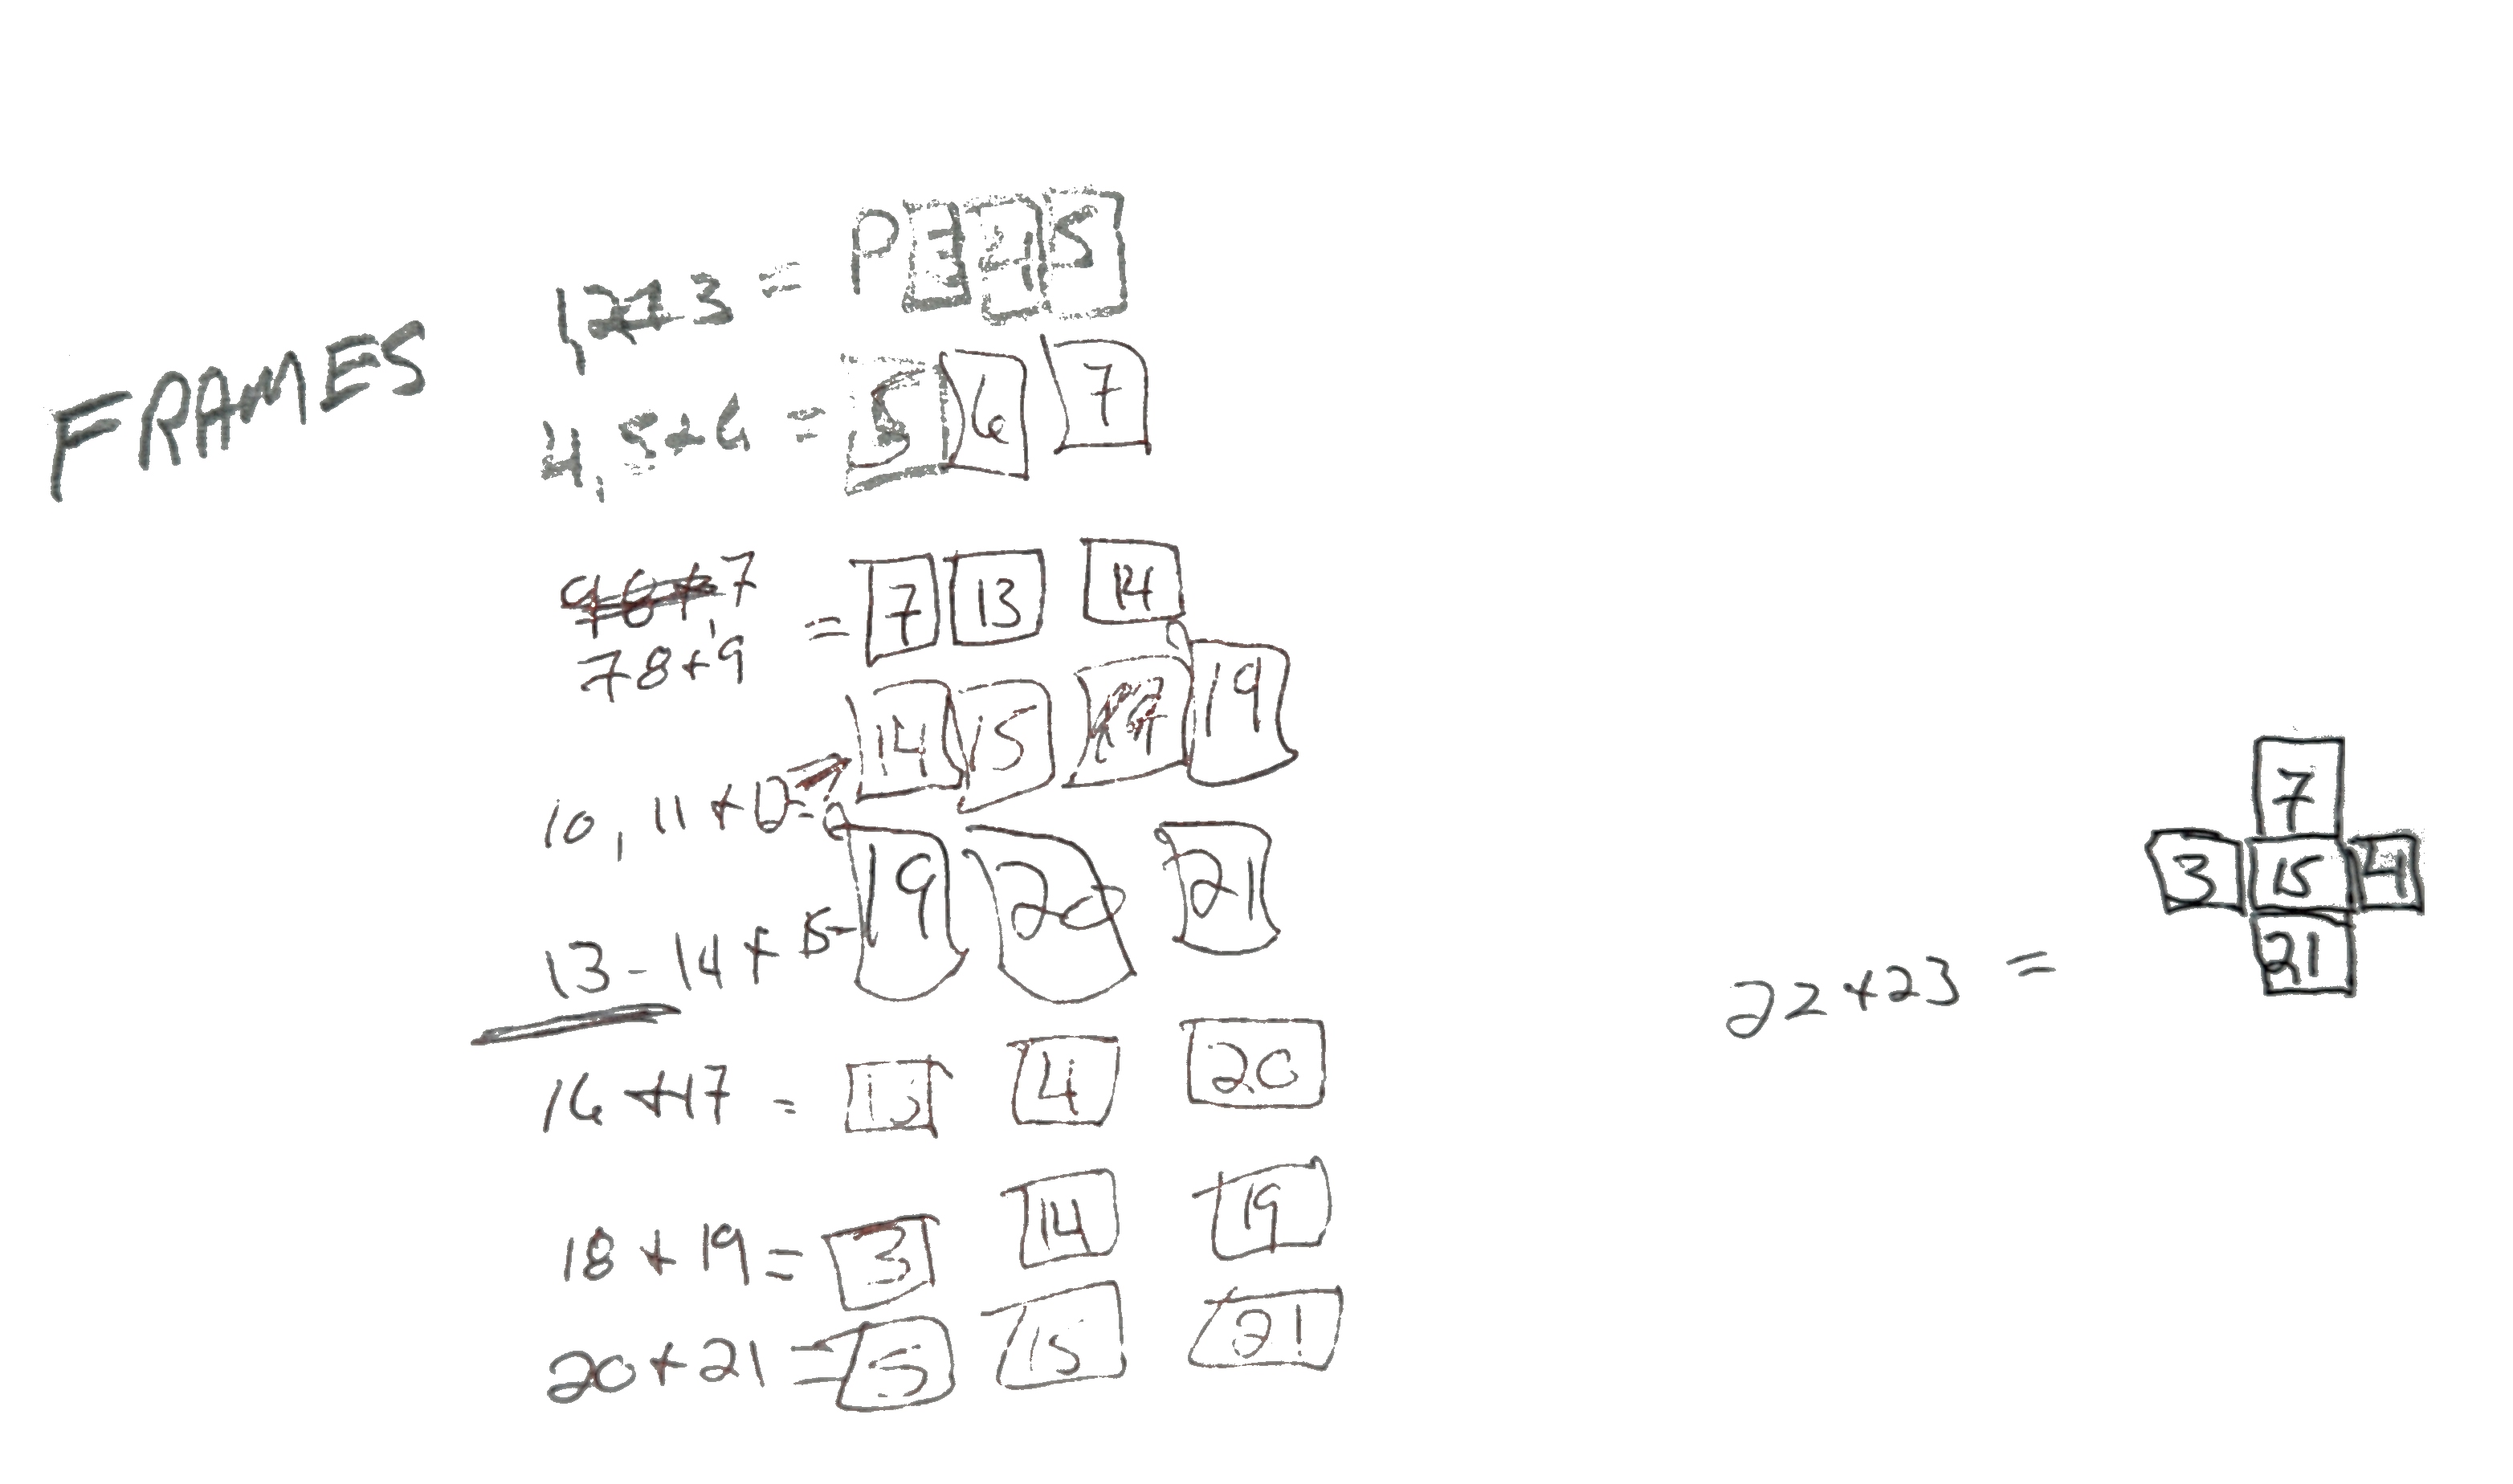 FRAMES
1,2+3 = P 3 4 5
4,5+6 = 5 6 7
7
7 8+9 = 7 13 14
10, 11+12 = 14 15 19
13-14+15- 19 20 21
16+17 = 13 4 20
18+19 = 3 14 19
20+21 = 5 15 21
22+23 =
7
3 15 4
21